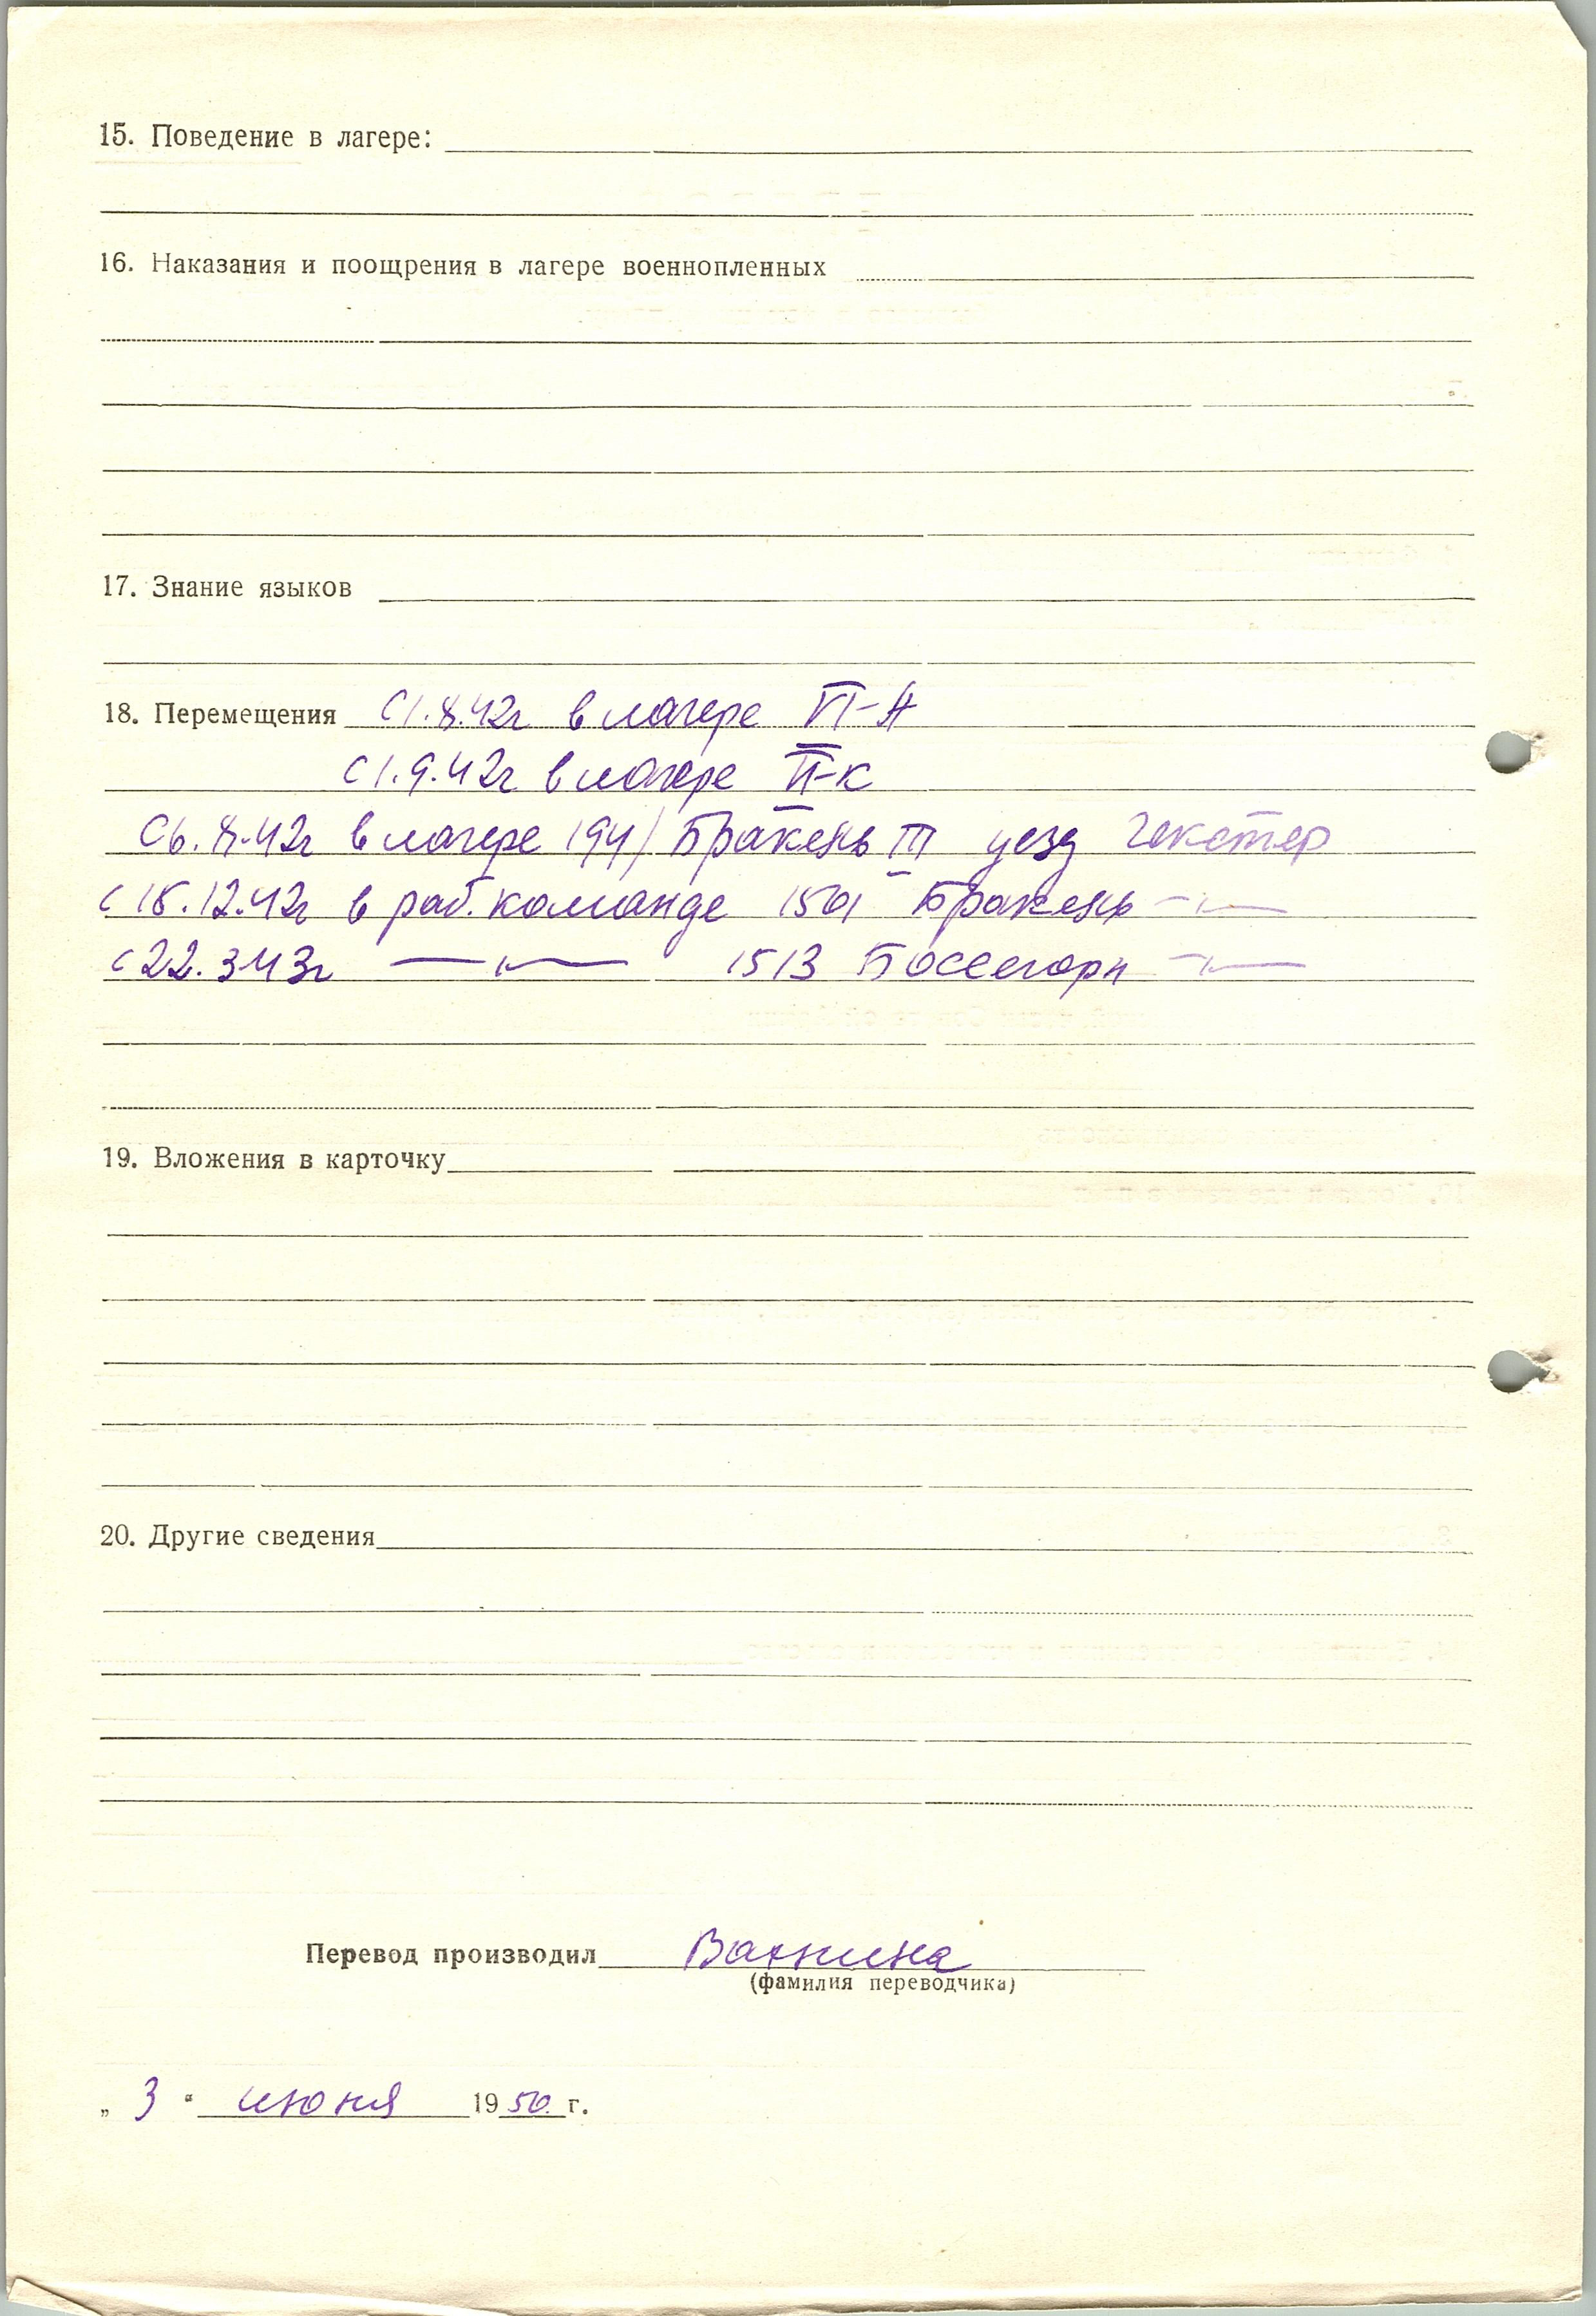 15. Поведение в лагере:
16. Наказания и поощрения в лагере военнопленных
17. Знание языков
18. Перемещения с 1.8.42г в лагере VI-А
с 1.9.42г в лагере VI-к
с 6.8.42г в лагере 194/ Бракель III уезд Гекстер
с 15.12.42г в раб. команде 1501 Бракель -"-
с 22.3.43г -"- 1513 Боссеborn -"-
19. Вложения в карточку
20. Другие сведения
Перевод производил Вахнина
(фамилия переводчика)
„ 3 “ июня 19 50 г.